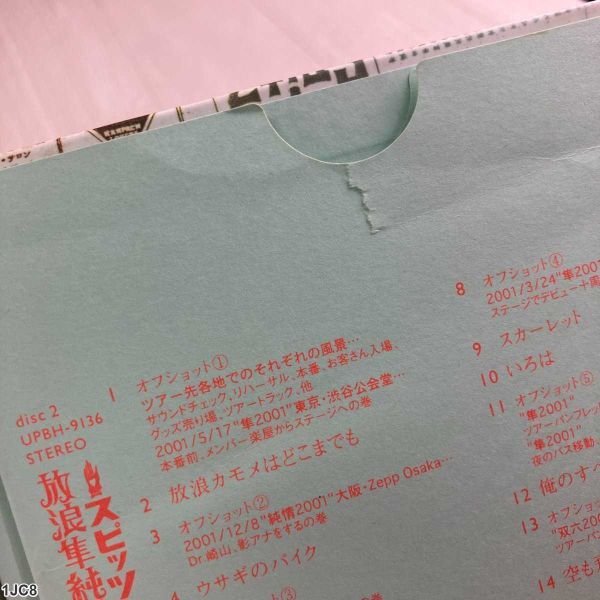 disc 2
UPBH-9136
STEREO
スピッツ
放浪隼純
1 オフショット①
ツアー先各地でのそれぞれの風景…
サウンドチェック、リハーサル、本番、お客さん入場、
グッズ売り場、ツアートラック、他
2001/5/17"隼2001"東京・渋谷公会堂…
本番前、メンバー楽屋からステージへの巻
2 放浪カモメはどこまでも
3 オフショット②
2001/12/8"純情2001"大阪・Zepp Osaka…
Dr.崎山、影アナをするの巻
4 ウサギのバイク
ショット③
8 オフショット④
2001/3/24"隼2001
ステージでデビュー十周
9 スカーレット
10 いろは
11 オフショット⑤
"隼2001"
ツアーパンフレッ
"隼2001"
夜のバス移動、
12 俺のすべ
13 オフショット
"双六200
ツアーパン
14 空も
1JC8